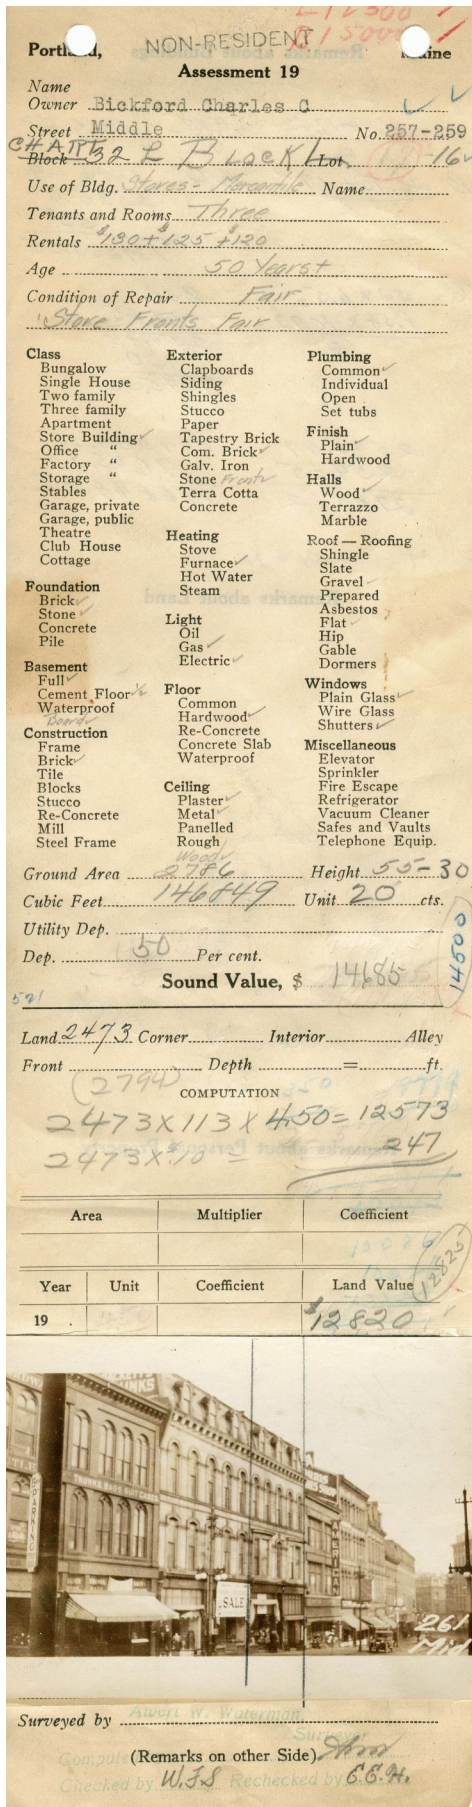 L 12500
B 15000
Portland, NON-RESIDENT Maine
Assessment 19
Name
Owner Bickford Charles C
Street Middle No. 257-259
CHART
Block 32 L Block 1 Lot 16
Use of Bldg. Stores - Mercantile Name
Tenants and Rooms Three
Rentals $130 + $125 + $120
Age 50 Years +
Condition of Repair Fair
Store Fronts Fair
Class
Bungalow
Single House
Two family
Three family
Apartment
Store Building ✓
Office "
Factory "
Storage "
Stables
Garage, private
Garage, public
Theatre
Club House
Cottage
Foundation
Brick ✓
Stone ✓
Concrete
Pile
Basement
Full ✓
Cement Floor ½
Waterproof
Board ✓
Construction
Frame
Brick ✓
Tile
Blocks
Stucco
Re-Concrete
Mill
Steel Frame
Exterior
Clapboards
Siding
Shingles
Stucco
Paper
Tapestry Brick
Com. Brick ✓
Galv. Iron
Stone Front ✓
Terra Cotta
Concrete
Heating
Stove
Furnace ✓
Hot Water
Steam
Light
Oil
Gas ✓
Electric ✓
Floor
Common
Hardwood ✓
Re-Concrete
Concrete Slab
Waterproof
Ceiling
Plaster ✓
Metal ✓
Panelled
Rough
Wood ✓
Plumbing
Common ✓
Individual
Open
Set tubs
Finish
Plain ✓
Hardwood
Halls
Wood ✓
Terrazzo
Marble
Roof — Roofing
Shingle
Slate
Gravel ✓
Prepared
Asbestos
Flat ✓
Hip
Gable
Dormers
Windows
Plain Glass ✓
Wire Glass
Shutters ✓
Miscellaneous
Elevator
Sprinkler
Fire Escape
Refrigerator
Vacuum Cleaner
Safes and Vaults
Telephone Equip.
Ground Area 2786 Height 55-30
Cubic Feet 146849 Unit 20 cts.
Utility Dep.
Dep. 50 Per cent.
14500
Sound Value, $ 14685
Land 2473 Corner Interior Alley
Front Depth = ft.
(2794)
COMPUTATION
2473 X 113 X 4.50 = 12573
2473 X .10 = 247
Area Multiplier Coefficient
12825
Year Unit Coefficient Land Value
19 . $12820
TRUNKS
TRUNKS BAGS SUIT CASES
PARKING
SALE
261
Mid
Surveyed by Albert W. Waterman
Surveyor
(Remarks on other Side)
Checked by W.F.S Rechecked by E.E.H.